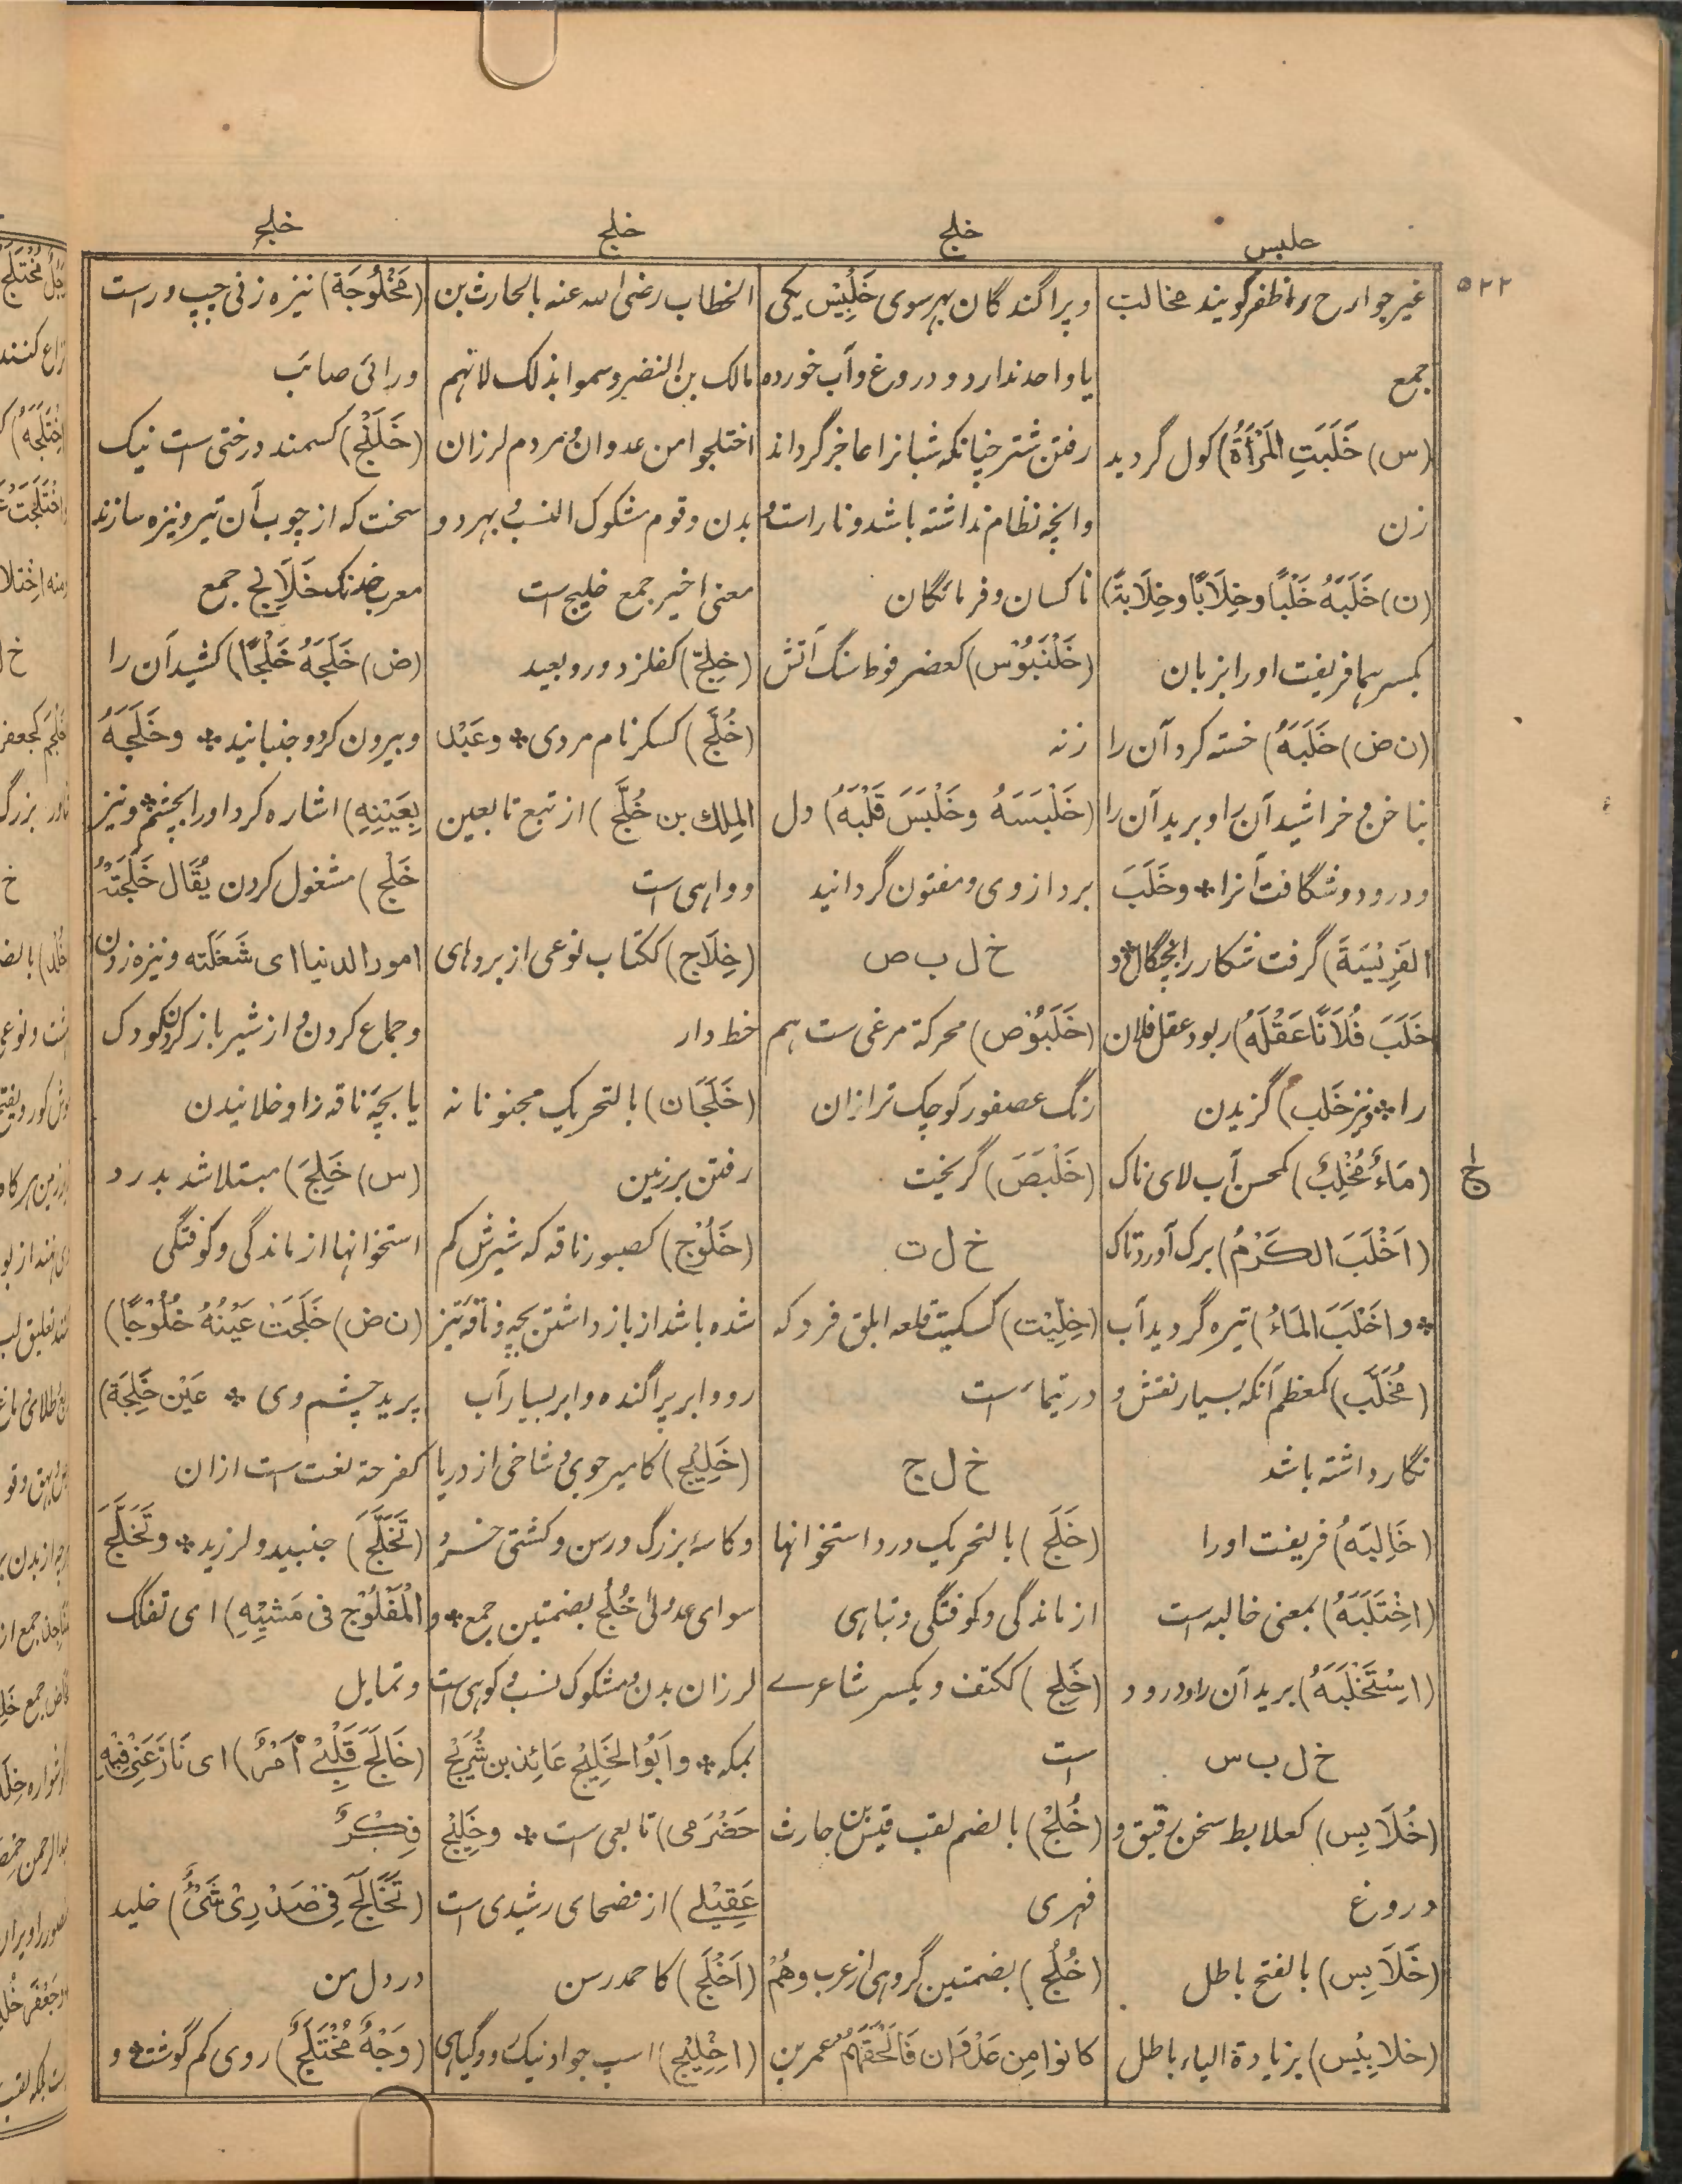 خلبس
خلج
خلج
خلج
۵۲۲
غیر جوارح را ظفر گویند مخالب
جمع
(س) خَلَبَتِ المَرْأَةُ) کول گردید
زن
(ن) خَلَبَهُ خَلْبًا وخِلَابًا وخِلَابَةً)
بکسرهما فریفت او را بزبان
(ن ض) خَلَبَهُ) خسته کرد آن را
بناخن و خراشید آن را و برید آن را
و درود و شگافت آنرا * وخَلَبَ
الفَرِیْسَةَ) گرفت شکار را بچنگال و
خَلَبَ فُلَانًا عَقْلَهُ) ربود عقل فلان
را * ونیز خَلب) گزیدن
(مَاءٌ مُخْلِبٌ) کمحسن آب لای ناک
(اَخْلَبَ الکَرْمُ) برگ آورد تاک
* و اَخْلَبَ المَاءُ) تیره گردید آب
(مُخَلَّب) کمعظم آنکه بسیار نقش و
نگار داشته باشد
(خَالَبَهُ) فریفت او را
(اخْتَلَبَهُ) بمعنی خالبه است
(اسْتَخْلَبَهُ) برید آن را و درود
خ ل ب س
(خُلَابِس) کعلابط سخن رقیق و
دروغ
(خَلَابِس) بالفتح باطل
(خلابِیْس) بزیادة الیاء باطل
و پراگندگان بهر سوی خَلْبِیْس یکی
یا واحد ندارد و دروغ و آب خورده
رفتن شتر چنانکه شبانرا عاجز گرداند
و انچه نظام نداشته باشد و ناراست و
ناکسان و فرمایگان
(خَلَنْبُوْس) کعضرفوط سنگ آتش
زنه
(خَلْبَسَهُ وخَلْبَسَ قَلْبَهُ) دل
برد از وی و مفتون گردانید
خ ل ب ص
(خَلَبُوْص) محرکة مرغی ست هم
رنگ عصفور کوچک تر ازان
(خَلْبَصَ) گریخت
خ ل ت
(خِلِّیْت) کسکیت قلعه ابلق فرد که
در تیماء است
خ ل ج
(خَلَج) بالتحریک درد استخوانها
از ماندگی و کوفتگی و تباهی
(خَلِج) ککتف و یکسر شاعرے
است
(خُلْج) بالضم لقب قیس بن حارث
فهری
(خُلُج) بضمتین گروهی از عرب وهُمْ
کانوا مِن عَدْوَان فَاَلْحَقَهُم عمر بن
الخطاب رضی الله عنه بالحارث بن
مالک بن النضر وسموا بذلک لانهم
اختلجوا من عدوان و مردم لرزان
بدن و قوم مشکوک النسب و بهر دو
معنی اخیر جمع خلیج است
(خِلِجّ) کفلز دور و بعید
(خُلَّج) کسکر نام مردی * وعَبْد
المِلك بن خُلَّج) از تبع تابعین
و واهی است
(خِلَاج) ککتاب نوعی از بردهای
خط دار
(خَلَجَان) بالتحریک مجنونانه
رفتن برزمین
(خَلُوْج) کصبور ناقه که شیرش کم
شده باشد از باز داشتن بچه و ناقه تیز
رو و ابر پراگنده و ابر بسیار آب
(خَلِیْج) کامیر جوی و شاخی از دریا
و کاسۀ بزرگ و رسن و کشتی خُرد
سوای عدولی خُلُج بضمتین جمع * و
لرزان بدن و مشکوک نسب و کوهی است
بمکه * و اَبُوالخَلِیْج عَائِذ بن شُرَیْح
حَضْرَمی) تابعی ست * وخَلِیْج
عَقِیْلے) از فصحای رشیدی است
(اَخْلَج) کاحمد رسن
(اخْلِیْج) اسپ جواد نیک دو و گیاهی
(مَخْلُوْجَة) نیزه زنی چپ و راست
و رائی صائب
(خَلَنْج) کسمند درختی است نیک
سخت که از چوب آن تیر و نیزه سازند
معرب خدنگ خَلَانِج جمع
(ض) خَلَجَهُ خَلْجًا) کشید آن را
و بیرون کرد و جنبانید * وخَلَجَهُ
بِعَیْنِهِ) اشاره کرد او را بچشم * ونیز
خَلْج) مشغول کردن یُقَال خَلَجَتْهُ
امور الدنیا ای شَغَلَته و نیزه زدن
و جماع کردن و از شیر باز کردن کودک
یا بچّه ناقه را و خلانیدن
(س) خَلِجَ) مبتلا شد بدرد
استخوانها از ماندگی و کوفتگی
(ن ض) خَلَجَتْ عَیْنُهُ خُلُوْجًا)
پرید چشم وی * عَیْن خَلِجَة)
کفرحة نعت است ازان
(تَخَلَّجَ) جنبید و لرزید * وتَخَلَّجَ
الْمَفْلُوْج فی مَشْیِهِ) ای تفکک
و تمایل
(خَالَجَ قَلْبِیْ اَمْرٌ) ای نَازَعَنِیْ فِیْهِ
فِکْرٌ
(تَخَالَجَ فِیْ صَدْرِیْ شَیْءٌ) خلید
در دل من
(وَجْهٌ مُخْتَلَجٌ) روی کم گوشت و